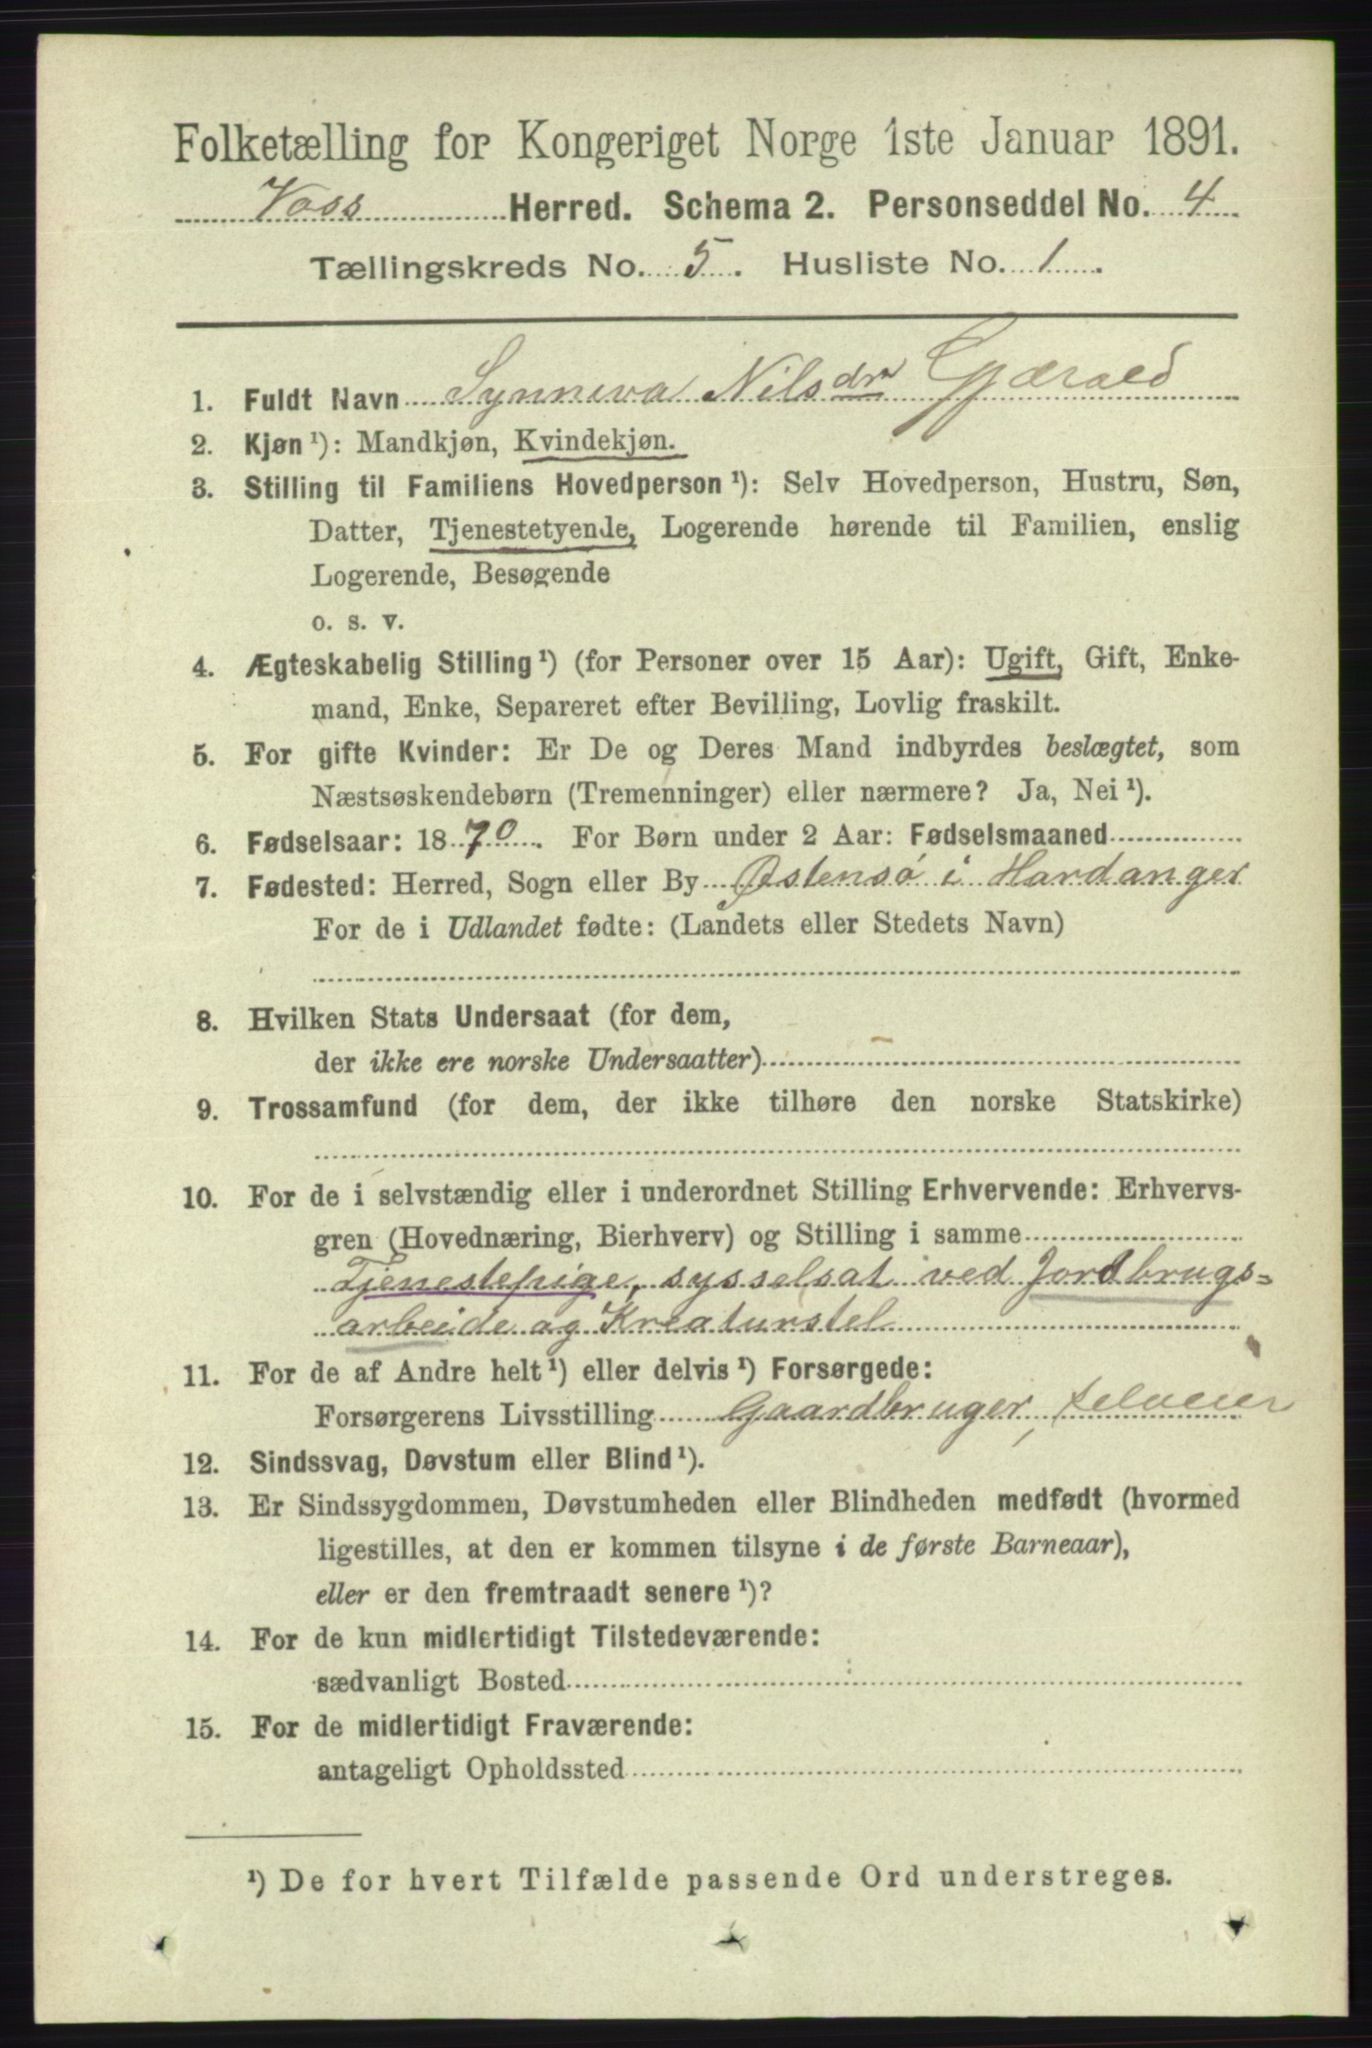 Folketælling for Kongeriget Norge 1ste Januar 1891.
Voss Herred. Schema 2. Personseddel No. 4
Tællingskreds No. 5. Husliste No. 1.
1. Fuldt Navn Synneva Nilsdn
2. Kjøn¹): Mandkjøn, Kvindekjøn.
3. Stilling til Familiens Hovedperson¹): Selv Hovedperson, Hustru, Søn,
Datter, Tjenestetyende, Logerende hørende til Familien, enslig
Logerende, Besøgende
o. s. v.
4. Ægteskabelig Stilling¹) (for Personer over 15 Aar): Ugift, Gift, Enke-
mand, Enke, Separeret efter Bevilling, Lovlig fraskilt.
5. For gifte Kvinder: Er De og Deres Mand indbyrdes beslægtet, som
Næstsøskendebørn (Tremenninger) eller nærmere? Ja, Nei¹).
6. Fødselsaar: 1870. For Børn under 2 Aar: Fødselsmaaned
7. Fødested: Herred, Sogn eller By Østensø i Hardanger
For de i Udlandet fødte: (Landets eller Stedets Navn)
8. Hvilken Stats Undersaat (for dem,
der ikke ere norske Undersaatter)
9. Trossamfund (for dem, der ikke tilhøre den norske Statskirke)
10. For de i selvstændig eller i underordnet Stilling Erhvervende: Erhvervs-
gren (Hovednæring, Bierhverv) og Stilling i samme
Tjenestepige, sysselsat ved Jordbrugs=
arbeide og Kreaturstel
11. For de af Andre helt¹) eller delvis¹) Forsørgede:
Forsørgerens Livsstilling Gaardbruger, selveier
12. Sindssvag, Døvstum eller Blind¹).
13. Er Sindssygdommen, Døvstumheden eller Blindheden medfødt (hvormed
ligestilles, at den er kommen tilsyne i de første Barneaar),
eller er den fremtraadt senere¹)?
14. For de kun midlertidigt Tilstedeværende:
sædvanligt Bosted
15. For de midlertidigt Fraværende:
antageligt Opholdssted
¹) De for hvert Tilfælde passende Ord understreges.